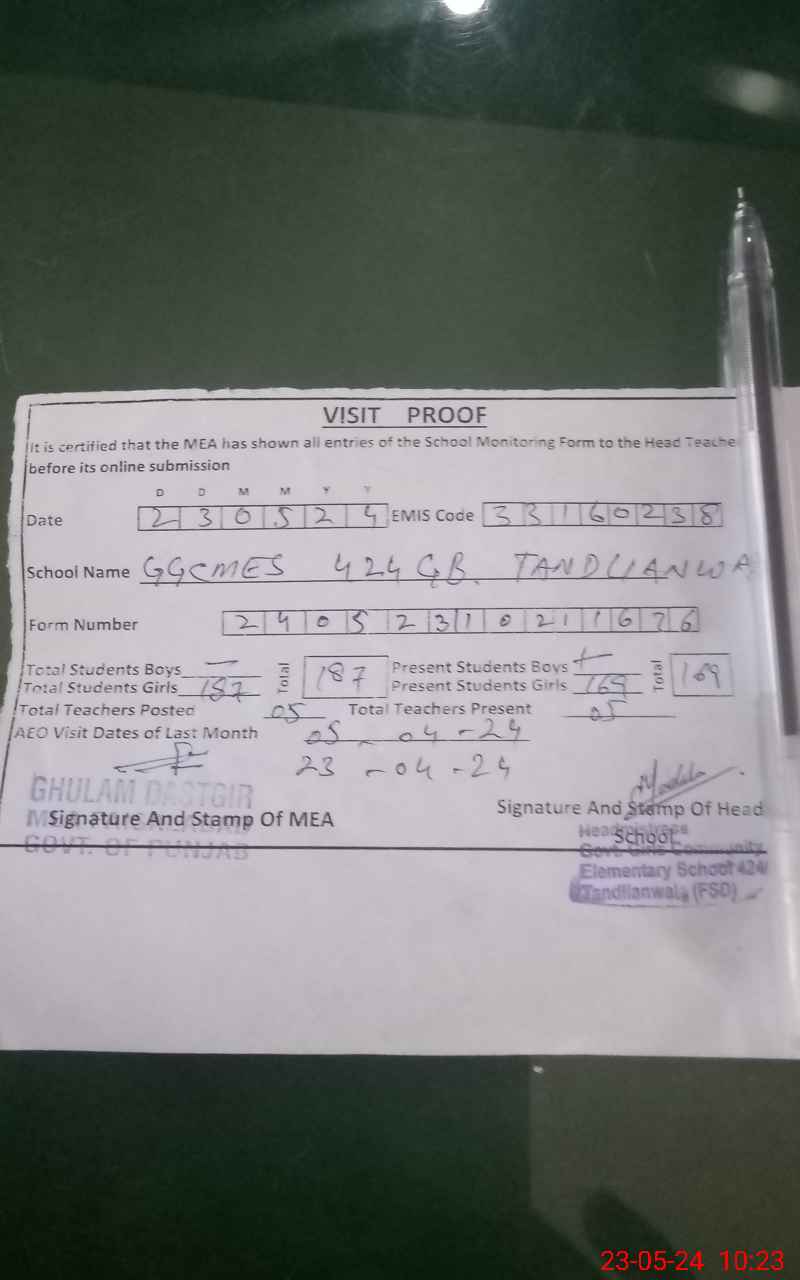 VISIT PROOF
It is certified that the MEA has shown all entries of the School Monitoring Form to the Head Teache
before its online submission
D D M M Y Y
Date 2 3 0 5 2 4 EMIS Code 3 3 1 6 0 2 3 8
School Name GGCMES 424 GB TANDLIANWA
Form Number 2 4 0 5 2 3 1 0 2 1 1 6 7 6
Total Students Boys — Total 187 Present Students Boys — Total 169
Total Students Girls 187 Present Students Girls 169
Total Teachers Posted 05 Total Teachers Present 05
AEO Visit Dates of Last Month 05 - 04 - 24
23 - 04 - 24
GHULAM DASTGIR
Signature And Stamp Of MEA Signature And Stamp Of Head
School
GOVT. OF PUNJAB
Govt. Girls Community
Elementary School 424/
Tandlianwala (FSD)
23-05-24 10:23